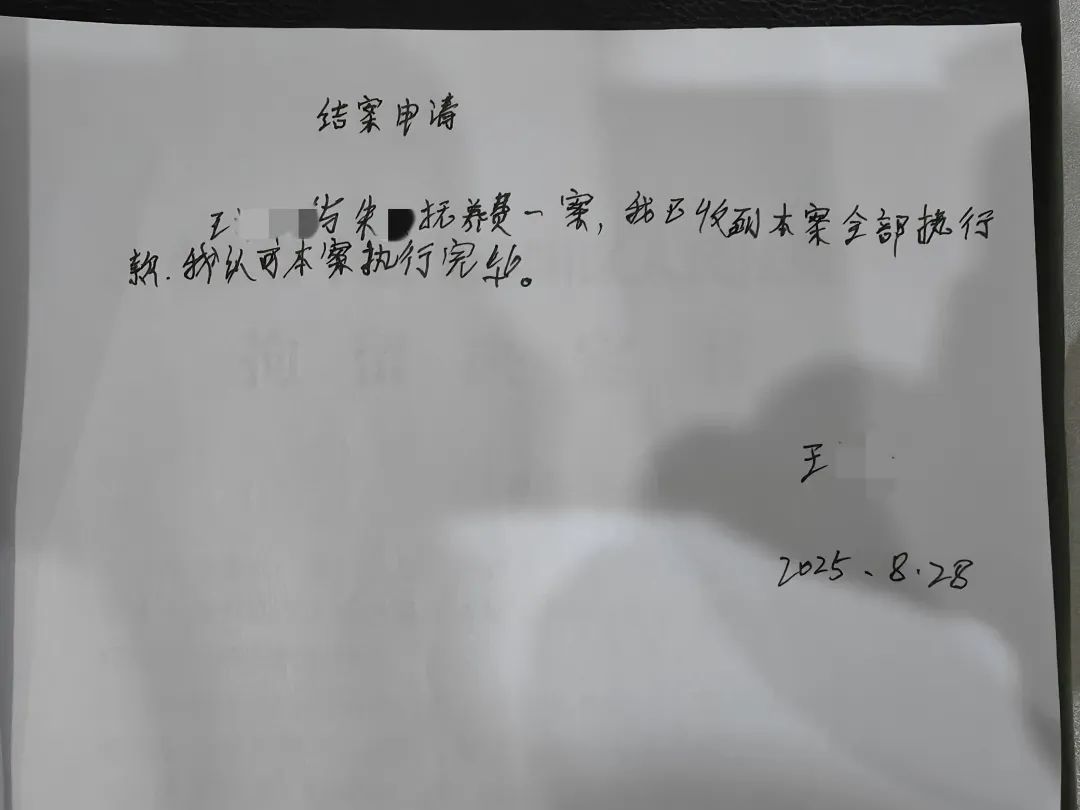 结案申请
王 与朱 抚养费一案,我已收到本案全部执行
款.我认可本案执行完毕。
王
2025、8.28